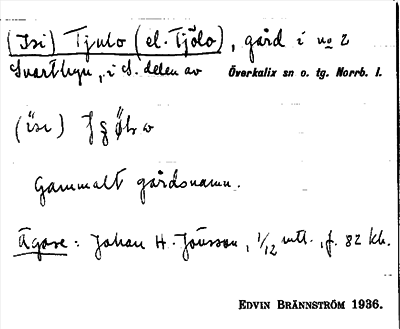 (Isi) Tjulo (el. Tjölo), gård i no 2
Svartbyn, i S. delen av Överkalix sn o. tg. Norrb. l.
(isi)
Gammalt gårdsnamn.
Ägare: Johan H. Jönsson, 1/12 mtl., f. 82 kh.
EDVIN BRÄNNSTRÖM 1936.